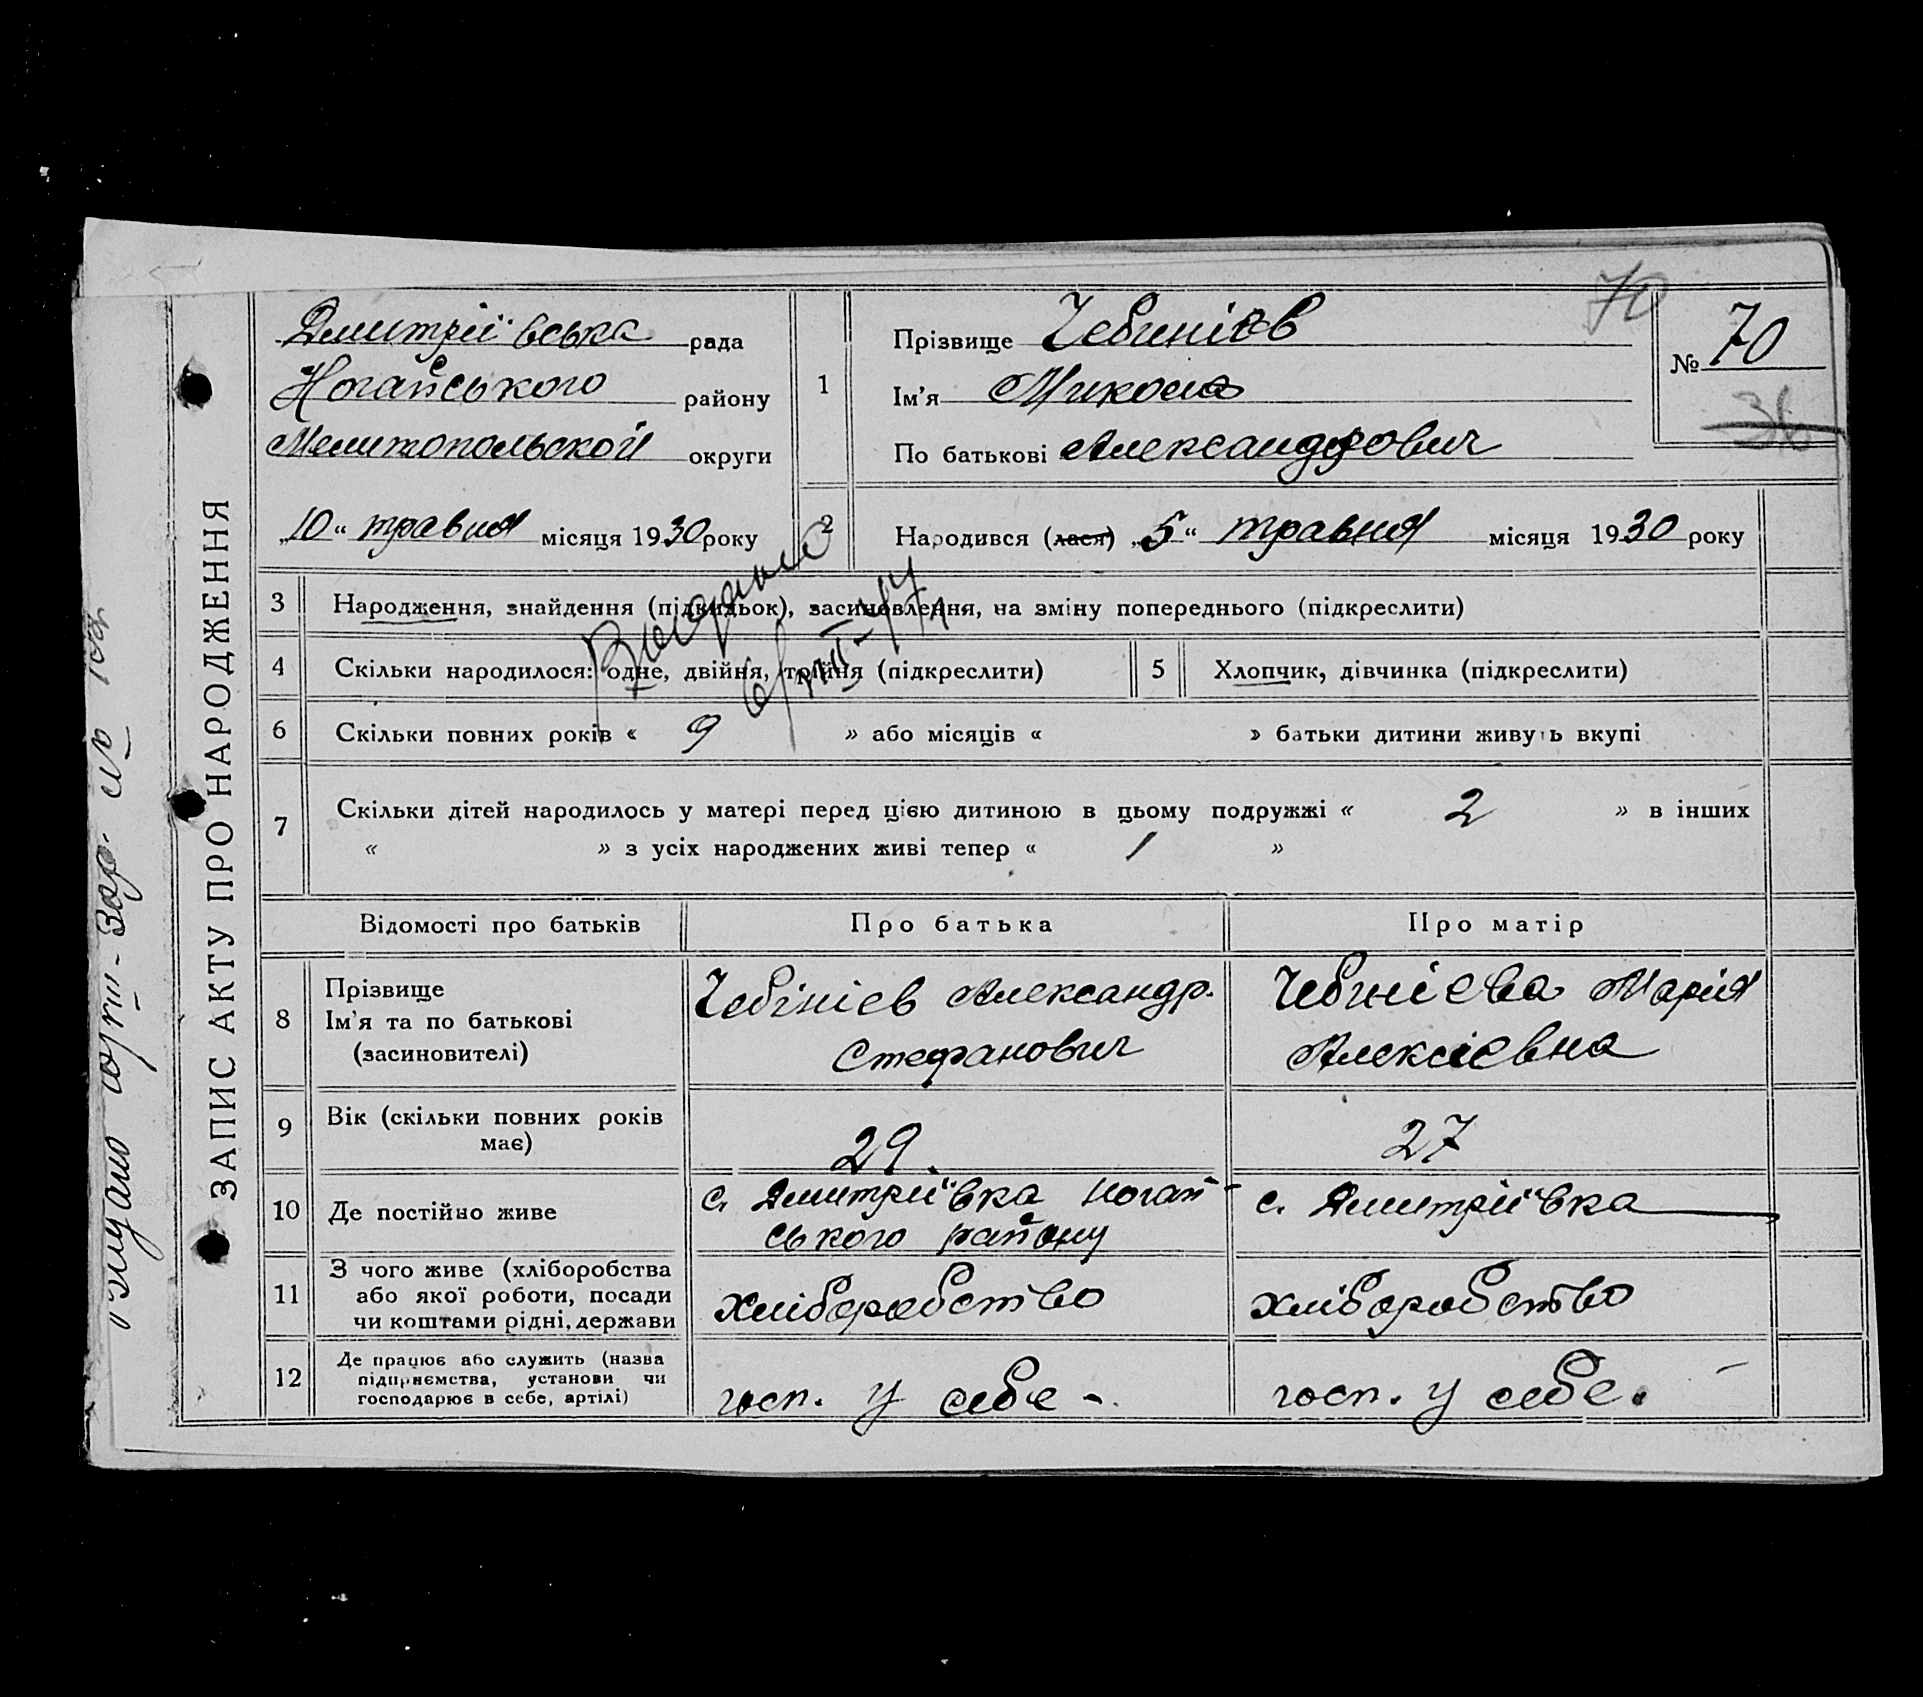 ЗАПИС АКТУ ПРО НАРОДЖЕННЯ
Дмитріївська рада
Ногайського району
Мелитопольской округи
„10“ травня місяця 1930 року
1
Прізвище Чебинієв
Ім'я Микола
По батькові Александрович
70
№ 70
36
2
Народився (лася) „5“ травня місяця 1930 року
3 Народження, знайдення (підкидьок), засиновлення, на зміну попереднього (підкреслити)
4 Скільки народилося: одне, двійня, трійня (підкреслити) 5 Хлопчик, дівчинка (підкреслити)
6 Скільки повних років « 9 » або місяців « » батьки дитини живуть вкупі
7 Скільки дітей народилось у матері перед цією дитиною в цьому подружжі « 2 » в інших
« » з усіх народжених живі тепер « 1 »
Відомості про батьків Про батька Про матір
8 Прізвище
Ім'я та по батькові
(засиновителі)
Чебінієв Александр.
Стефанович
Чебинієва Марія
Алексієвна
9 Вік (скільки повних років
має)
29.
27
10 Де постійно живе
с. Дмитріївка Ногай-
ського району
с. Дмитріївка
11 З чого живе (хліборобства
або якої роботи, посади
чи коштами рідні, держави
хліборобство
хліборобство
12 Де працює або служить (назва
підприємства, установи чи
господарює в себе, артілі)
госп. у себе -.
госп. у себе.